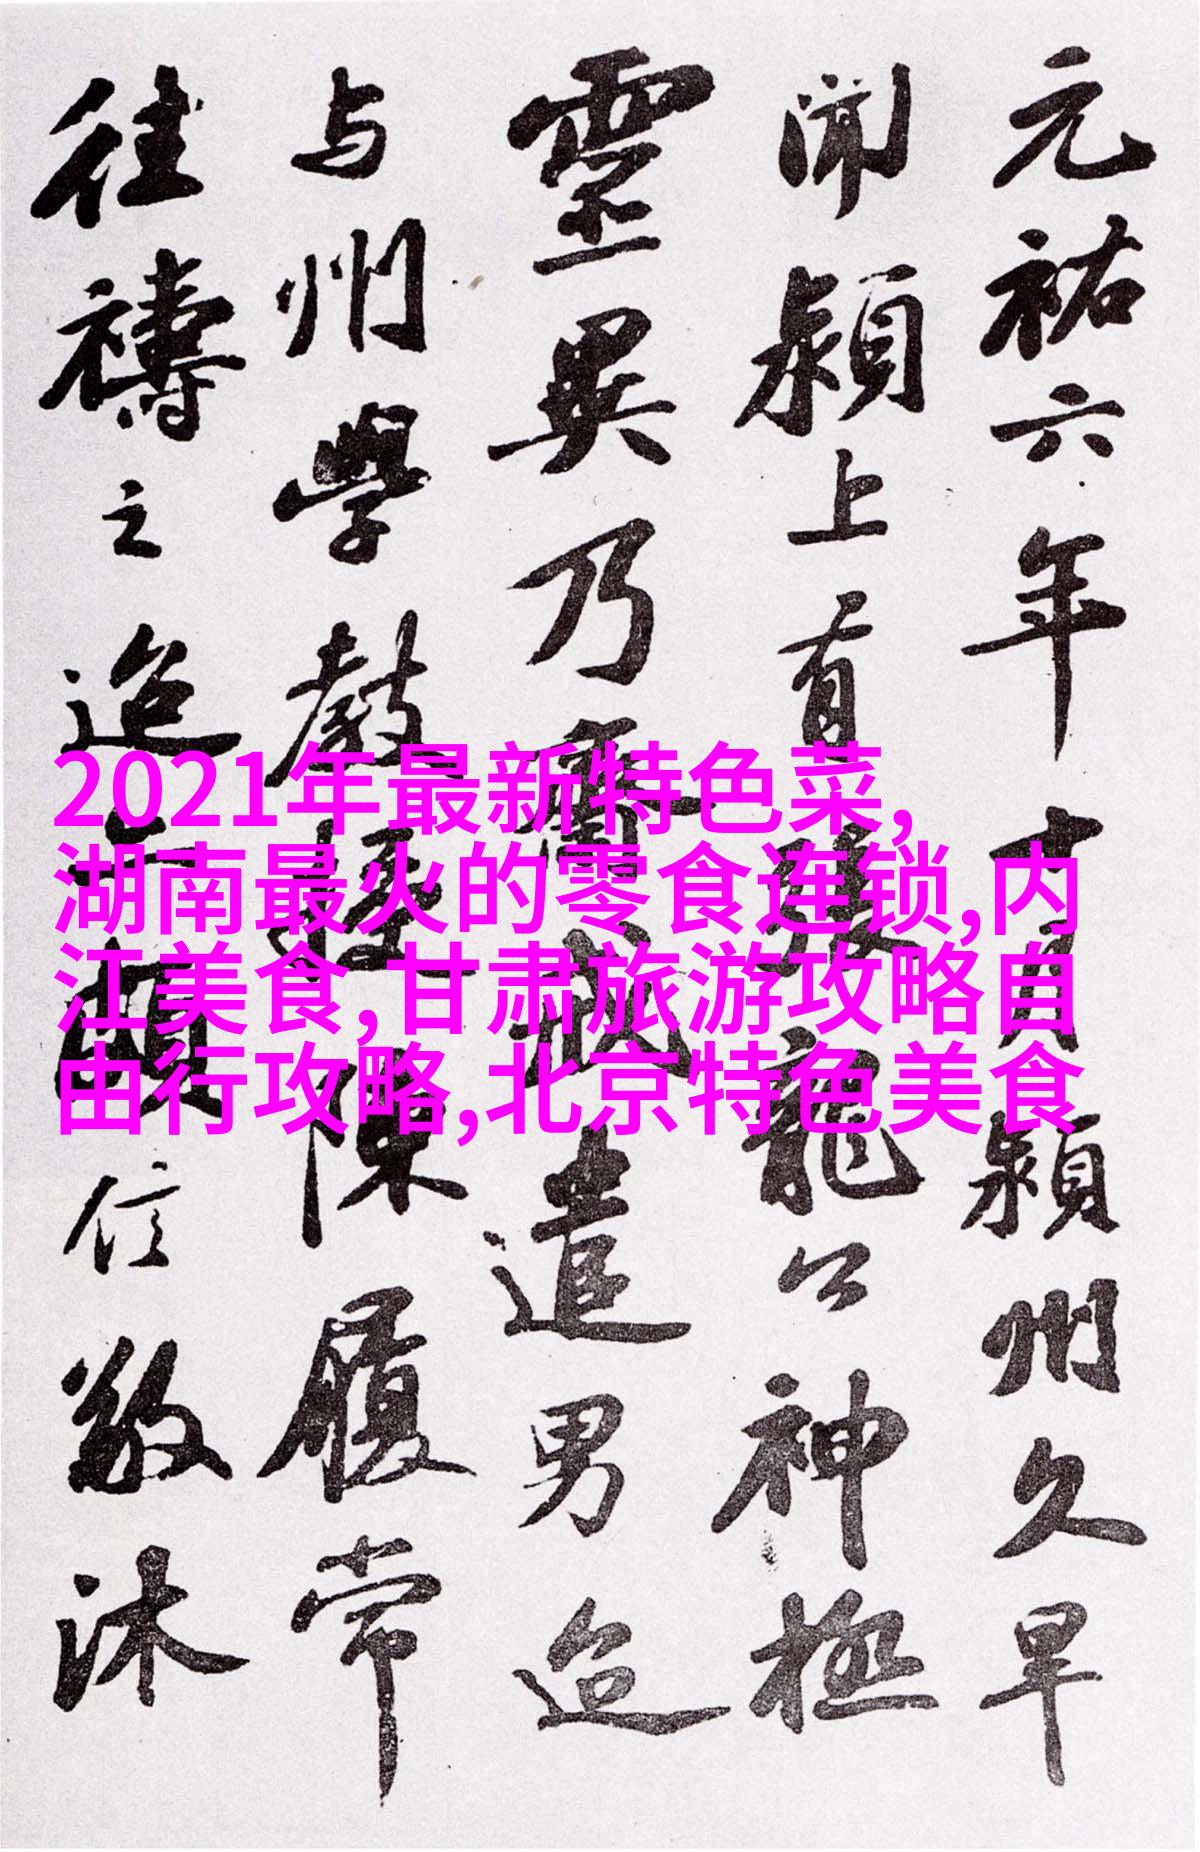 元祐六年十月潁州久旱
聞潁上有張龍公神極
靈異乃齋戒遣男迨
与州學教授陳履常
往禱之迨亦頗信敬沐
2021年最新特色菜,
湖南最火的零食连锁,内
江美食,甘肃旅游攻略自
由行攻略,北京特色美食